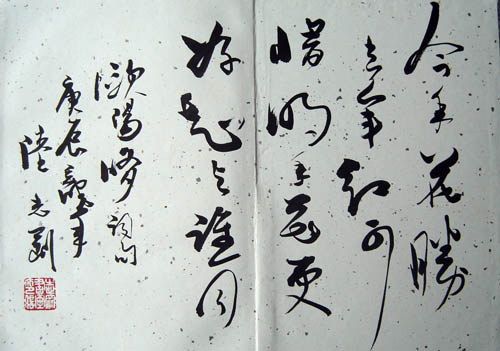 今年花勝
去年紅可
惜明年花更
好知与誰同
歐陽修詞句
庚辰
陸志